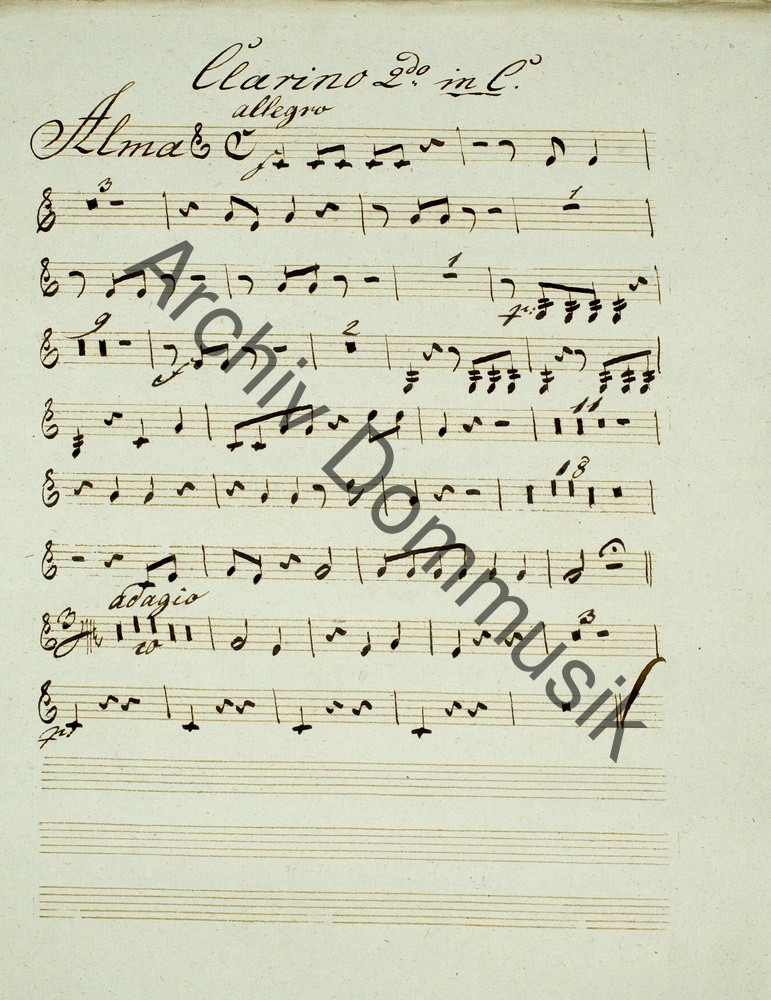 Clarino 2do in C.
allegro
Alma C f
3 1
1 p:
9 f 2
11
13
adagio
3 10 3
p:
Archiv Dommusik